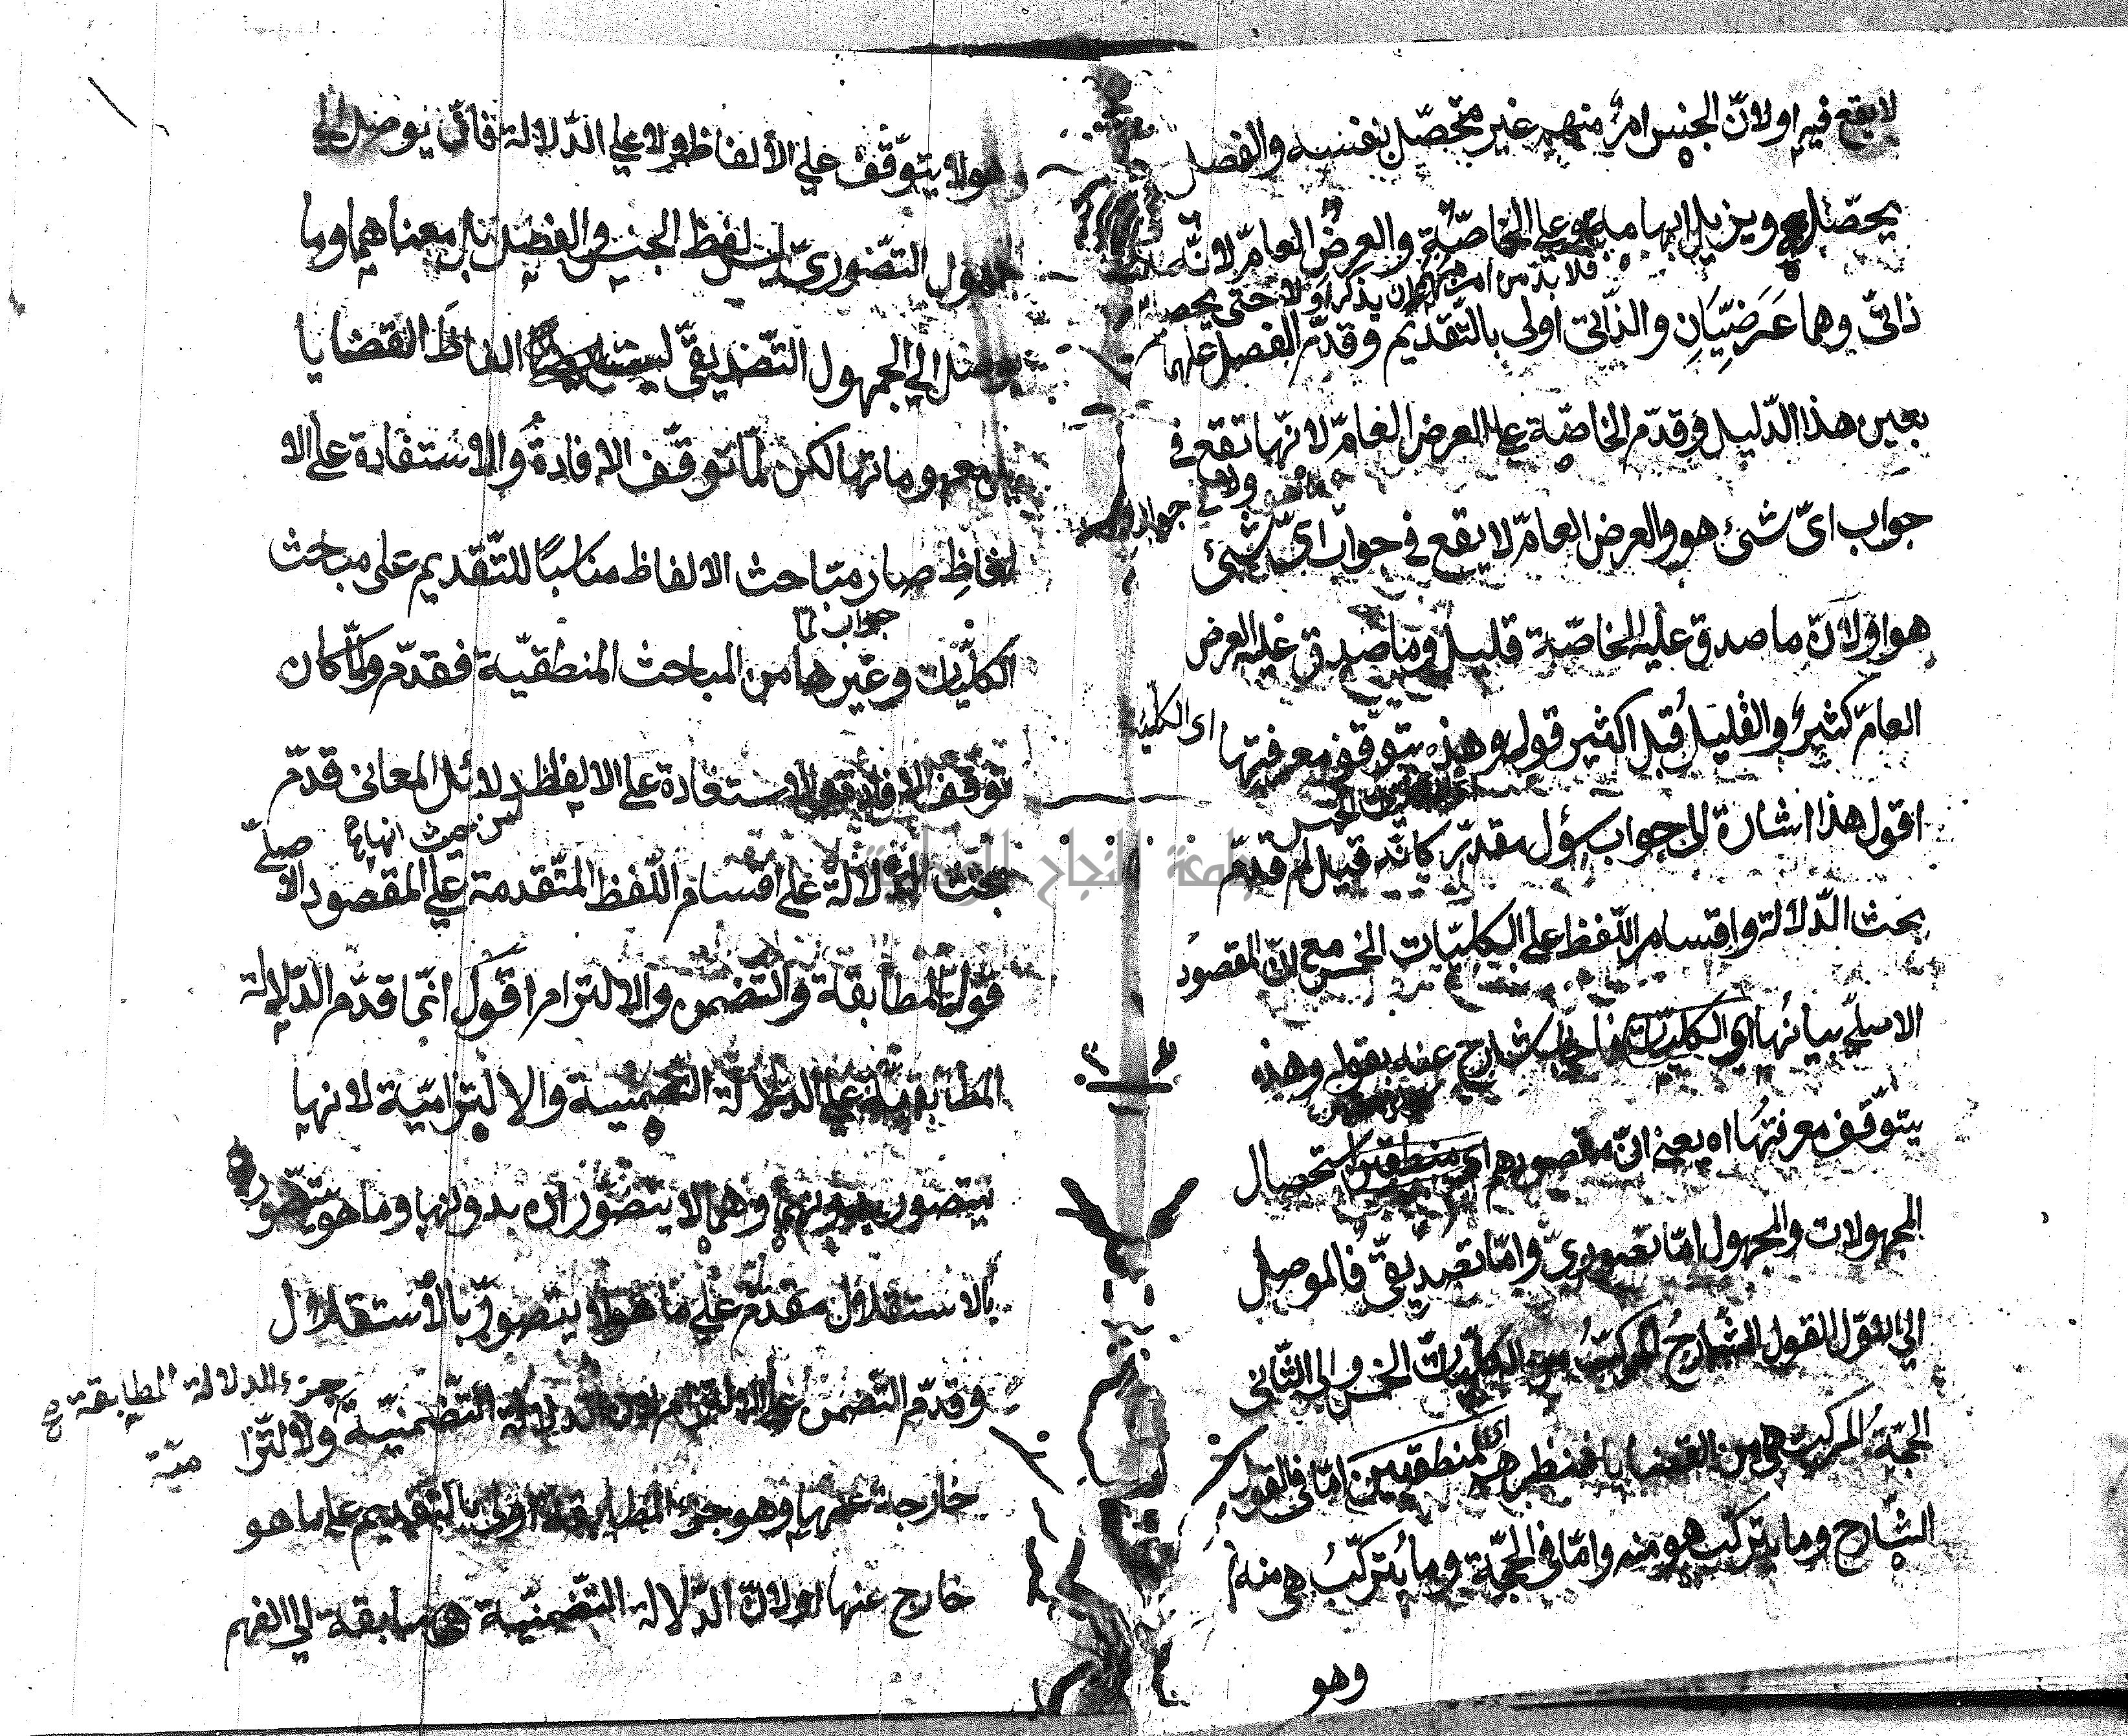 لا يقع فيه او لانّ الجنس امرٌ منهم غير متحصّل بنفسه والفصل
يحصّله ويزيل ابهامه وعلى الخاصّة والعرض العامّ لانّه
فلا بدّ من ان يذكر اوّلا حتى يحصله
ذاتىّ وهما عَرَضِيَّانِ والذّاتى اولى بالتّقديم وقدّم الفصل عليهما
بعين هذا الدّليل وقدّم الخاصّة على العرض العامّ لانّها تقع فى
جواب اىّ شئ هو والعرض العامّ لا يقع فى جواب اىّ شئ
ولا فى جواب ما هو
هو او لانّ ما صدق عليه الخاصّة قليل وما صدق عليه العرض
العامّ كثيرٌ والقليل قبل الكثير قوله وهذه يتوقّف معرفتها
اى الكليّة
اقول هذا اشارة الى جواب سؤل مقدّر كانّه قيل لم قدّم
بحث الدّلالة واقسام اللّفظ على الكليّات الخمس مع انّ المقصود
الاصلىّ بيانُها اى الكليّات فاجاب الشارح عنه بقوله وهذه
يتوقّف معرفتُها اه يعنى انّ مقصودهم اى منطقيين استحصال
المجهولات والمجهول امّا تصورىّ وامّا تصديقىّ فالموصل
الى الاوّل القول الشّارحُ المركّبُ من الكليّات الخمس والى الثّانى
الحجّةُ المركّبت هى من القضايا فنظرهم اى المنطقيين امّا فى القول
الشّارح وما يتركّب هو منه وامّا فى الحجّة وما يُتركّبُ هى منه
وهو
وهو لا يتوقّف على الألفاظ ولا على الدّلالة فانّ يوصل الى
المجهول التّصورىّ ليس لفظ الجنس والفصل بل معناهما وما
يوصل الى المجهول التّصديقىّ ليست الفاظَ القضايا
بل مفهوماتها لكن لمّا توقّف الافادةُ والاستفادة على الا
لفاظِ صار مباحث الالفاظ مناسبًا للتّقديم على مباحث
جواب لمّا
الكليّات وغيرها من المباحث المنطقيّة فقدّم ولمّا كان
توقّف الافادة والاستفادة على الالفاظ دلائل المعانى قدّم
من حيث انها
بحث الدّلالة على اقسام اللّفظ المتّقدمة على المقصود الا
صلىّ
قوله المطابقة والتّضمن والالتزام اقول انّما قدّم الدّلالة
المطابقيّة على الدّلالة التّضمنيّة والالتزاميّة لانها
يتصور بدونهما وهما لا يتصوران بدونها وما هو يتصور
بالاستقلال مقدّم على ما هو لا يتصور بالأستقلال
وقدّم التّضمن على الالتزام لان الدلالة التّضمنيّة والالتزا
جزء الدلالة المطابقة صح
ميّة
خارجة عنها وهو جزء المطابقة اولى بالتّقديم على ما هو
خارج عنها او لانّ الدّلالة التّضمنيّة هى سابقة الى الفهم
جامعة النجاح الوطنية